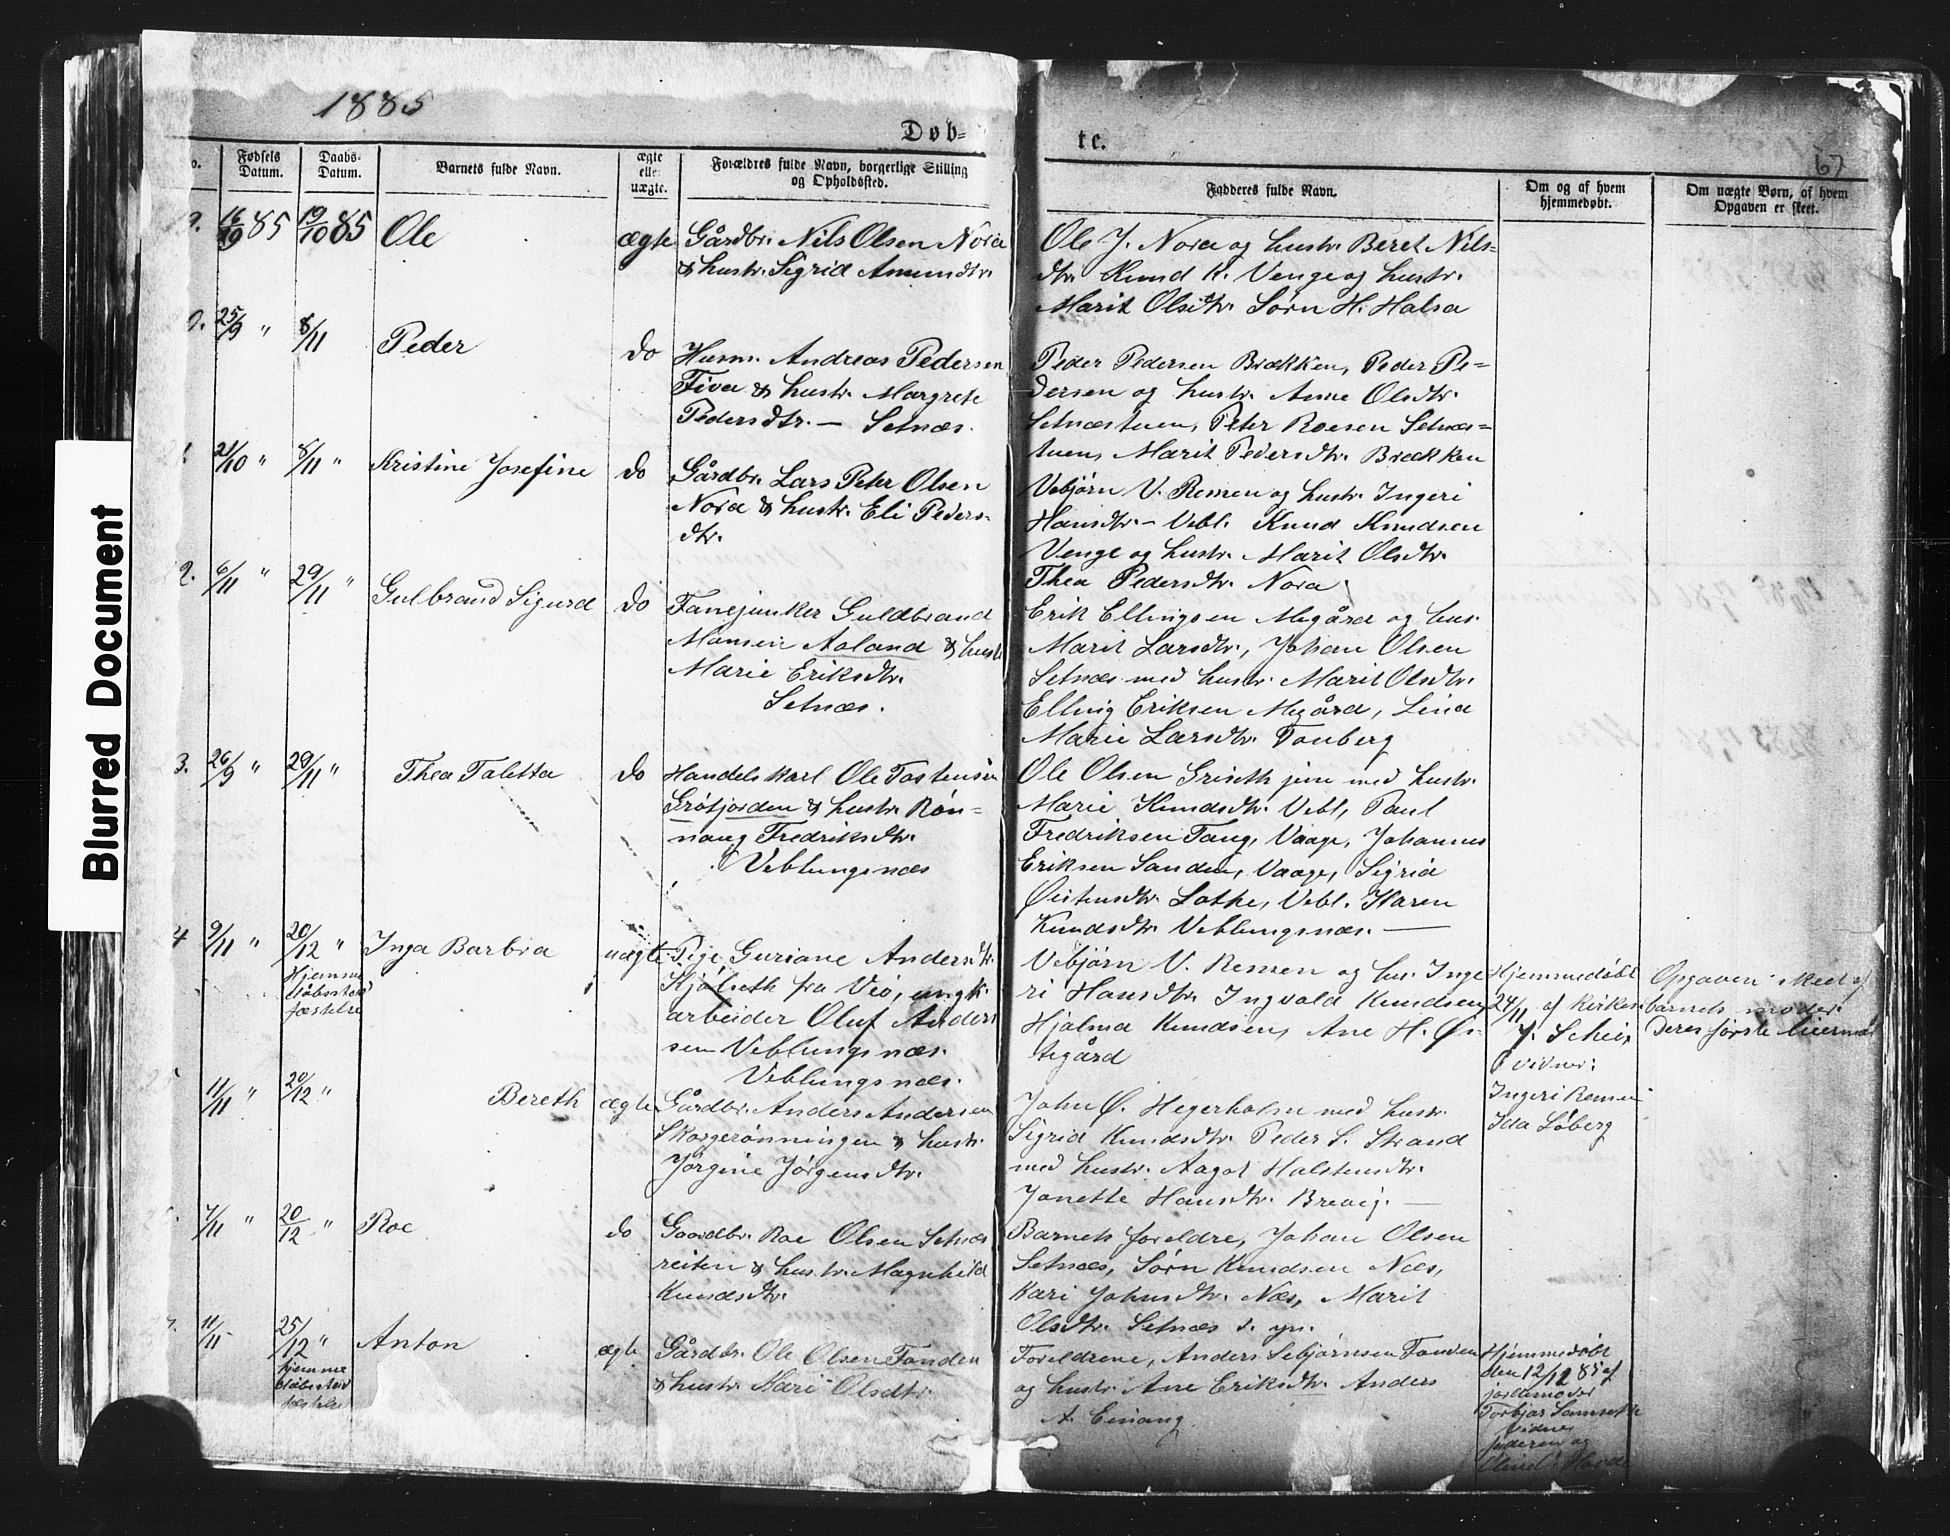 1885
Døb-
te.
67
o.
Fødsels Datum.
Daabs- Datum.
Barnets fulde Navn.
ægte eller uægte.
Forældres fulde Navn, borgerlige Stilling og Opholdssted.
Fadderes fulde Navn.
Om og af hvem hjemmedøbt.
Om uægte Børn, af hvem Opgaven er skeet.
16/9 85 19/10 85 Ole ægte Gårdbr. Nils Olsen Nora
& hustr. Sigrid Amundtr.
Ole J. Nora og hustr. Beret Nils-
dtr. Knud K. Venge og hustr.
Marit Olsdtr. Sørn H. Halsa
25/9 " 8/11 Peder do Husm. Andreas Pedersen
Fiva & hustr. Margrete
Pedersdtr. — Setnæs.
Peder Pedersen Brækken, Peder Pe-
dersen og hustr. Anne Olsdtr.
Setnæstuen, Peter Roesen Setnæs-
tuen, Marit Pedersdtr. Brækken
21/10 " 8/11 " Kristine Josefine do Gårdbr. Lars Peter Olsen
Nora & hustr. Eli Peders-
dtr.
Vebjørn V. Remen og hustr. Ingeri
Hansdtr. — Vebl. Knud Knudsen
Venge og hustr. Marit Olsdtr.
Thea Pedersdtr. Nora
2. 6/11 " 29/11 " Gulbrand Sigurd do Fanejunker Guldbrand
Monsen Aaland & hustr
Marie Eriksdtr.
Setnæs.
Erik Ellingsen Megård og hus.
Marit Larsdtr., Johan Olsen
Setnæs med hustr. Marit Olsdtr.
Elling Eriksen Megård, Lina
Marie Larsdtr. Tonberg
3. 26/9 " 29/11 " Thea Taletta do Handelskarl Ole Tostensen
Grøtjorden & hustr. Røn-
naug Fredriksdtr.
Veblungsnæs
Ole Olsen Griseth jun med hustr.
Marie Knudsdtr. Vebl, Paul
Fredriksen Tang, Vaage, Johannes
Eriksen Sanden, Vaage, Sigrid
Øistensdtr. Lothe, Vebl. Karen
Knudsdtr. Veblungsnæs. —
4 9/11 " 20/12 " Inga Barbra uægte Pige Guriane Andersdtr.
Hjemme
dåbsstad
fæstelse
Kjølseth fra Veø, ungk.
arbeider Oluf Anders
sen Veblungsnæs.
Veblungsnæs.
Vebjørn V. Remen og hus. Inge
ri Hansdtr. Ingvald Knudsen,
Hjalma Knudsen, Ane H. Øs-
tegård
Hjemmedøbt
24/11 af Kirkes.
J. Schei,
vidner:
Ingeri Remen
Ida Løberg
Opgaven skeet af
barnets moder.
Deres første leiermål
11/11 " 20/12 " Bereth ægte Gårdbr. Anders Andersen
Skorgerønningen & hustr.
Jørgine Jørgensdtr.
John Ø. Hegerholm med hustr.
Sigrid Knudsdtr. Peder S. Strand
med hustr. Aagot Halstensdtr.
Janette Hansdtr. Breivig. —
7/11 " 20/12 " Roe do Gaardbr. Roe Olsen Setnæs
reiten & hustr. Magnhild
Knudsdtr.
Barnets foreldre, Johan Olsen
Setnæs, Sørn Knudsen Næs,
Kari Johnsdtr. Næs, Marit
Olsdtr. Setnæs d. yn.
11/11 25/12 " Anton ægte Gårdbr. Ole Olsen Tanden
hjemme
dåbsstad
& hustr. Kari Olsdtr.
Foreldrene, Anders Sebjørnsen Tanden
og hustr. Ane Eriksdtr. Anders
A. Einang
Hjemmedøbt
den 12/12 85 af
jordemoder
vidner
og
Blurred Document